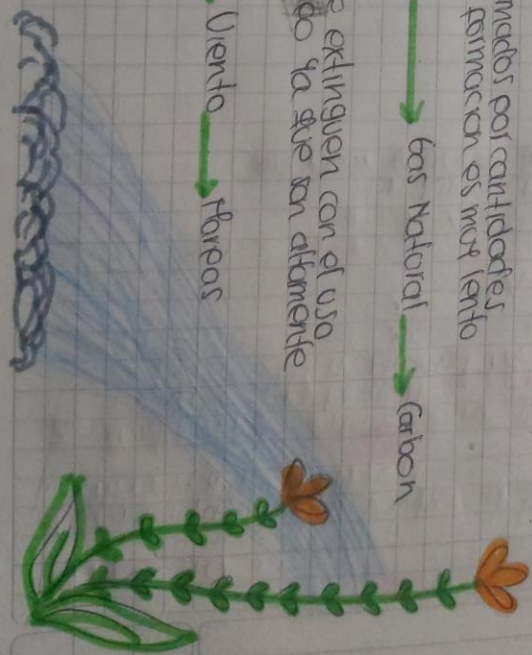 mados por cantidades
formacion es muy lento
Gas Natural Carbon
extinguen con el uso
ya que son altamente
Viento Mareas